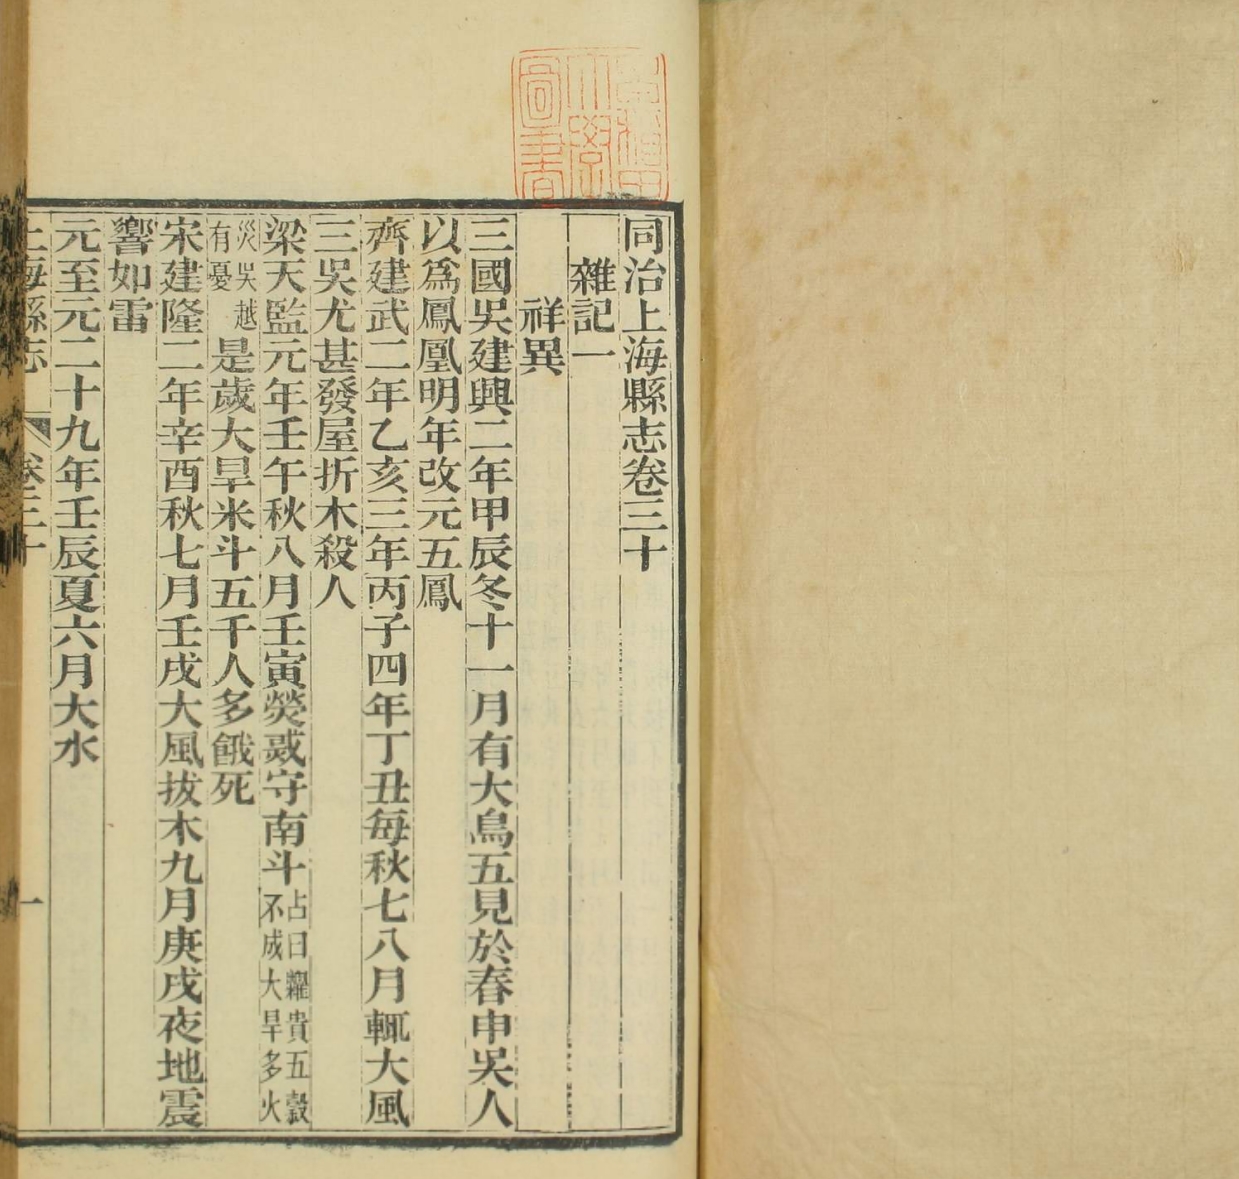 早稲田
大學
圖書
同治上海縣志卷三十
雜記一
祥異
三國吳建興二年甲辰冬十一月有大鳥五見於春申吳人
以爲鳳凰明年改元五鳳
齊建武二年乙亥三年丙子四年丁丑每秋七八月輒大風
三吳尤甚發屋折木殺人
梁天監元年壬午秋八月壬寅熒惑守南斗占曰糴貴五穀不成大旱多火
災吳越有憂是歲大旱米斗五千人多餓死
宋建隆二年辛酉秋七月壬戌大風拔木九月庚戌夜地震
響如雷
元至元二十九年壬辰夏六月大水
上海縣志 卷三十 一